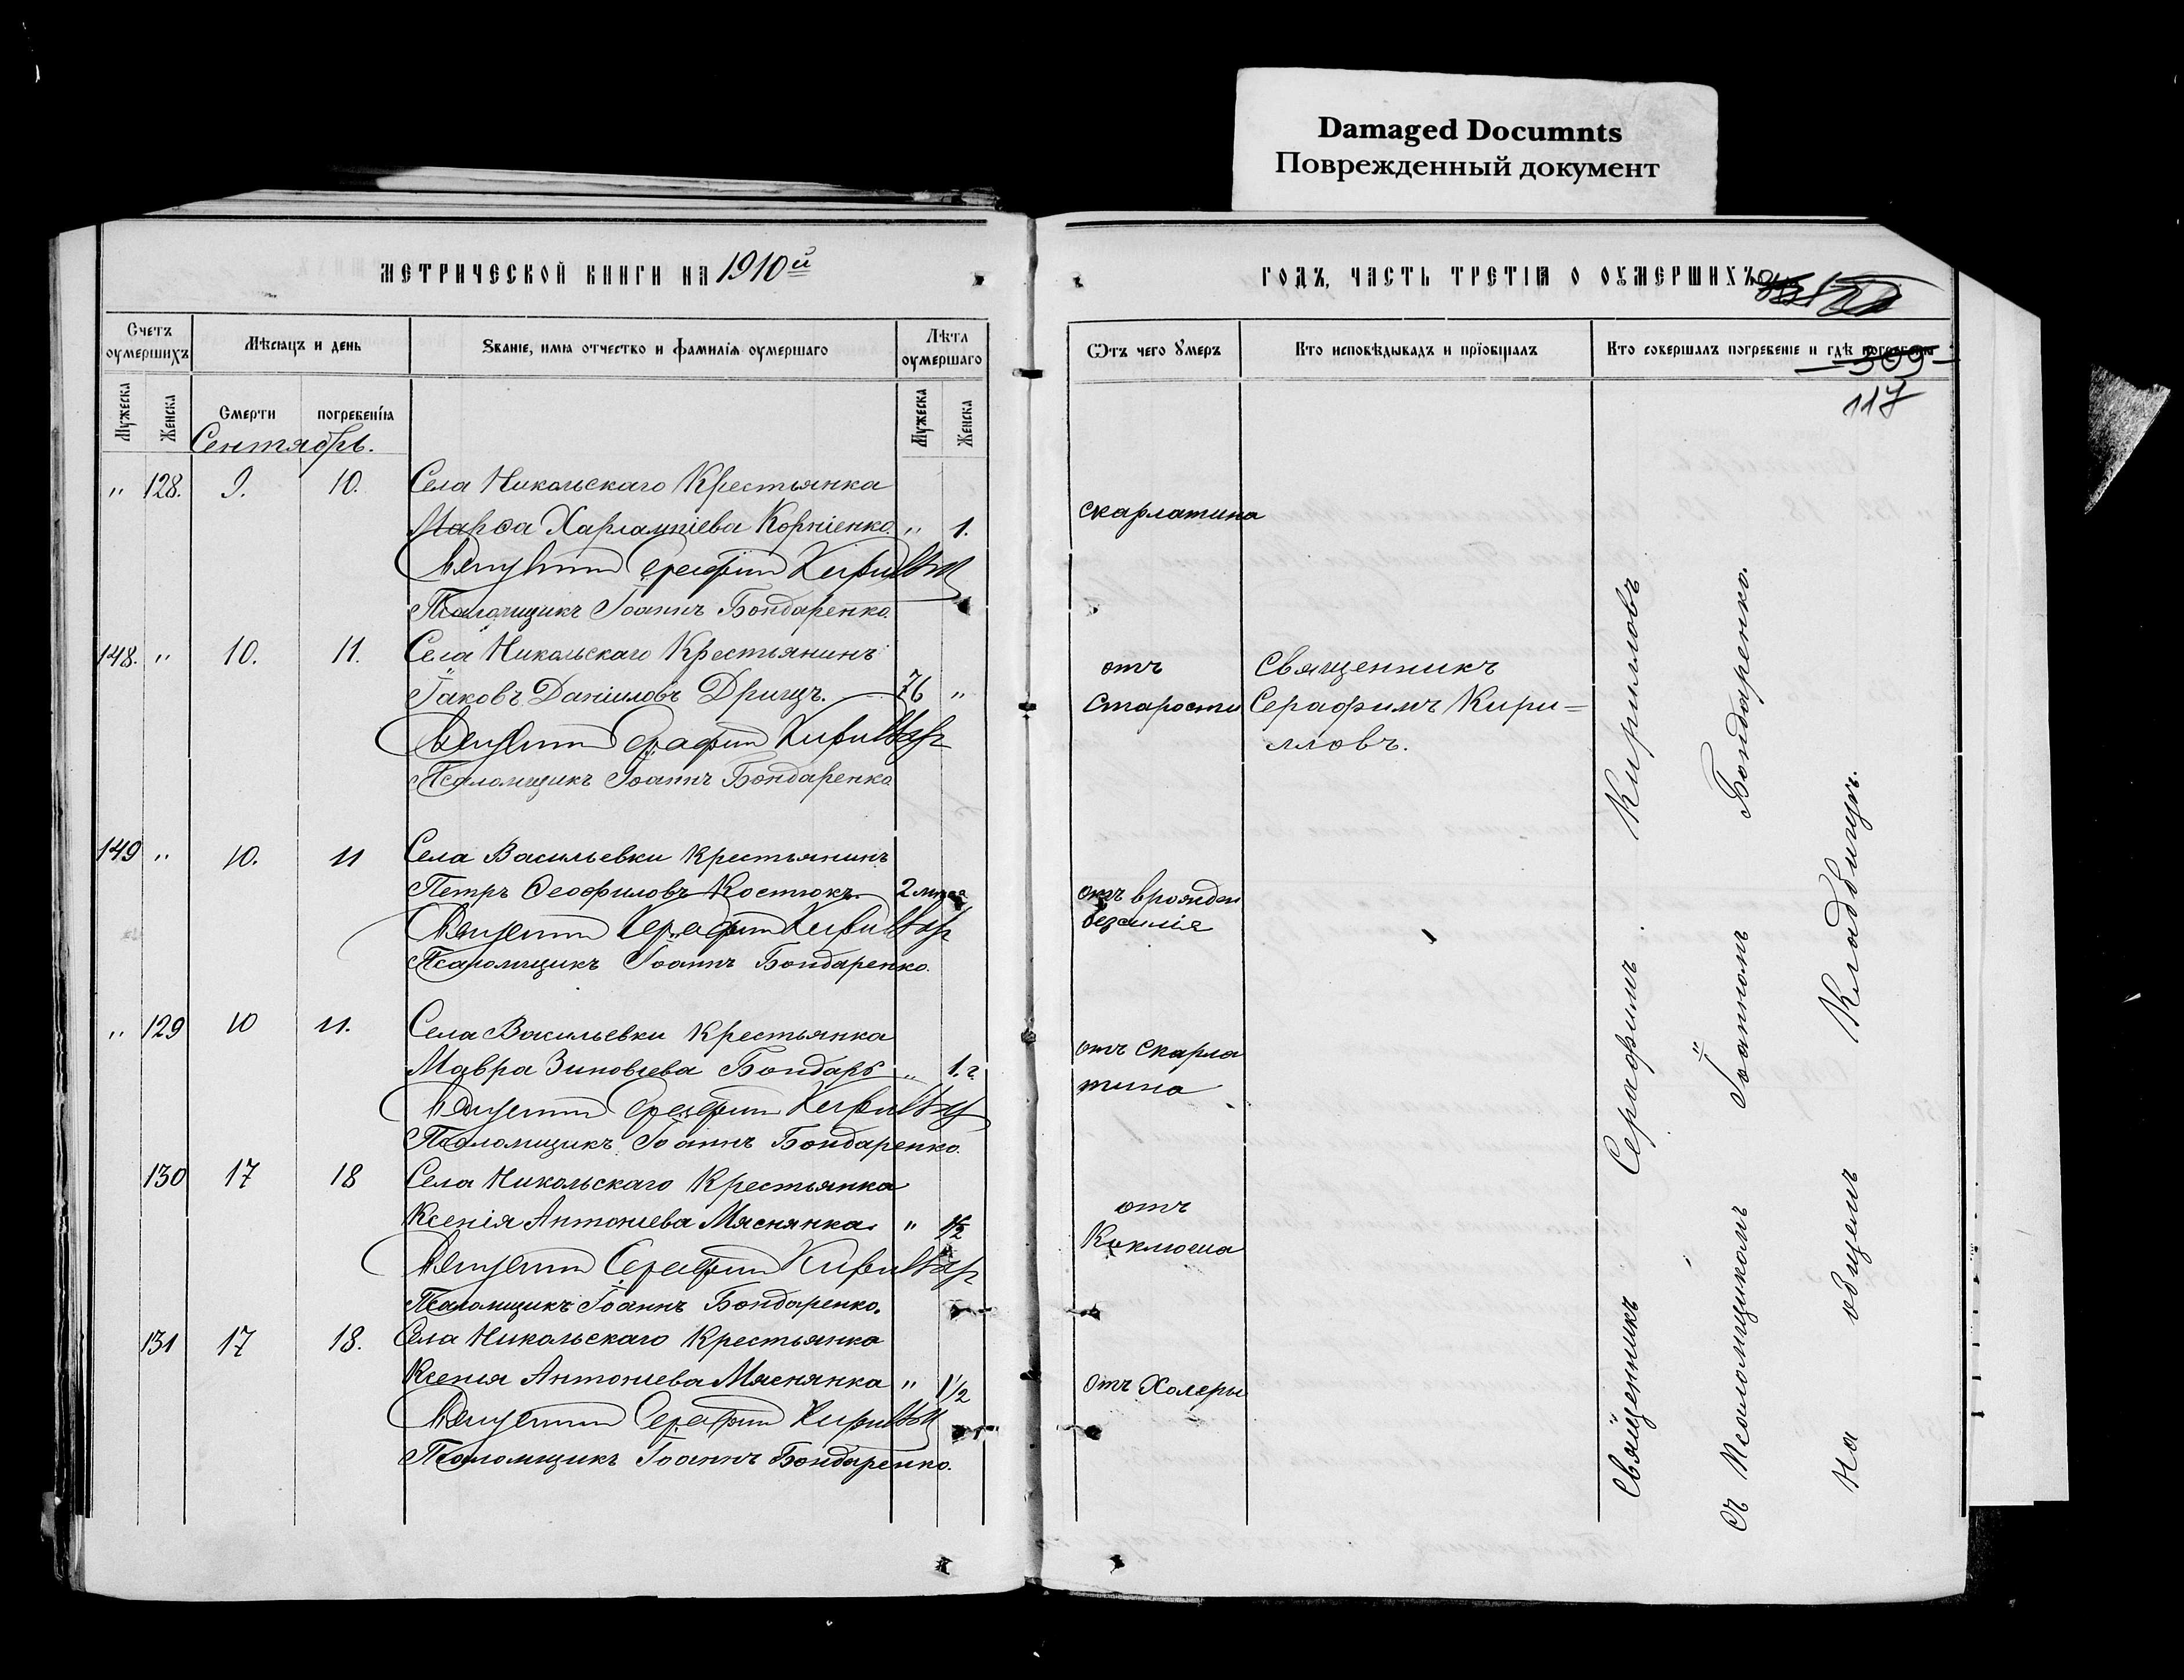 Damaged Documnts
Поврежденный документ
МЕТРИЧЕСКОЙ КНИГИ НА 1910й
ГОДЪ, ЧАСТЬ ТРЕТІЯ О ОУМЕРШИХЪ
Счетъ оумершихъ
Мѣсяцъ и день
Званіе, имя отчество и фамилія оумершаго
Лѣта оумершаго
Мужеска
Женска
Смерти
погребенія
Мужеска
Женска
Сентябрь.
Ѿтъ чего Умеръ
Кто исповѣдывалъ и пріобщалъ
Кто совершалъ погребеніе и гдѣ погребены
309
117
" 128. 9. 10. Села Никольскаго Крестьянка
Марѳа Харлампіева Корніенко. " 1. скарлатина
Серафим Кирилл
Псаломщикъ Іоаннъ Бондаренко.
148. " 10. 11. Села Никольскаго Крестьянинъ отъ Священникъ
Іаковъ Даніиловъ Дрищъ. 76 " старости Серафимъ Кири=
Серафим Кирилл лловъ.
Псаломщикъ Іоаннъ Бондаренко
149 " 10. 11 Села Васильевки Крестьянинъ
Петръ Ѳеофиловъ Костюкъ. 2 отъ врожден
Серафим Кирилл безсилія
Псаломщикъ Іоаннъ Бондаренко.
" 129 10 11. Села Васильевки Крестьянка
Мавра Зиновіева Бондарь " 1. г. отъ скарла
Серафим Кирилл тина
Псаломщикъ Іоаннъ Бондаренко.
130 17 18 Села Никольскаго Крестьянка
Ксенія Антоніева Маснянка. " 1/2 отъ
Серафим Кирилл Коклюша
Псаломщикъ Іоаннъ Бондаренко.
131 17 18. Села Никольскаго Крестьянка
Ксенія Антоніева Маснянка " 1 1/2 отъ Холеры
Серафим Кирилл
Псаломщикъ Іоаннъ Бондаренко.
Священникъ Серафимъ Кирилловъ
съ Псаломщикомъ Іоанномъ Бондаренко.
на общемъ Кладбищѣ.